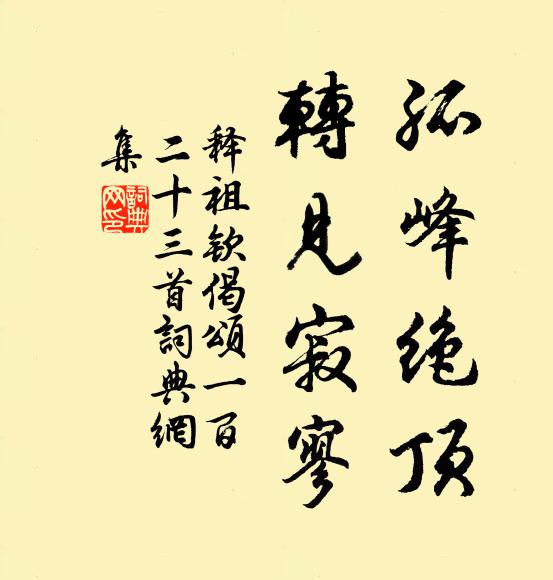 孤峰绝顶
轉見寂寥
释祖欽偈頌一百
二十三首詞典網
集
詞典
网印